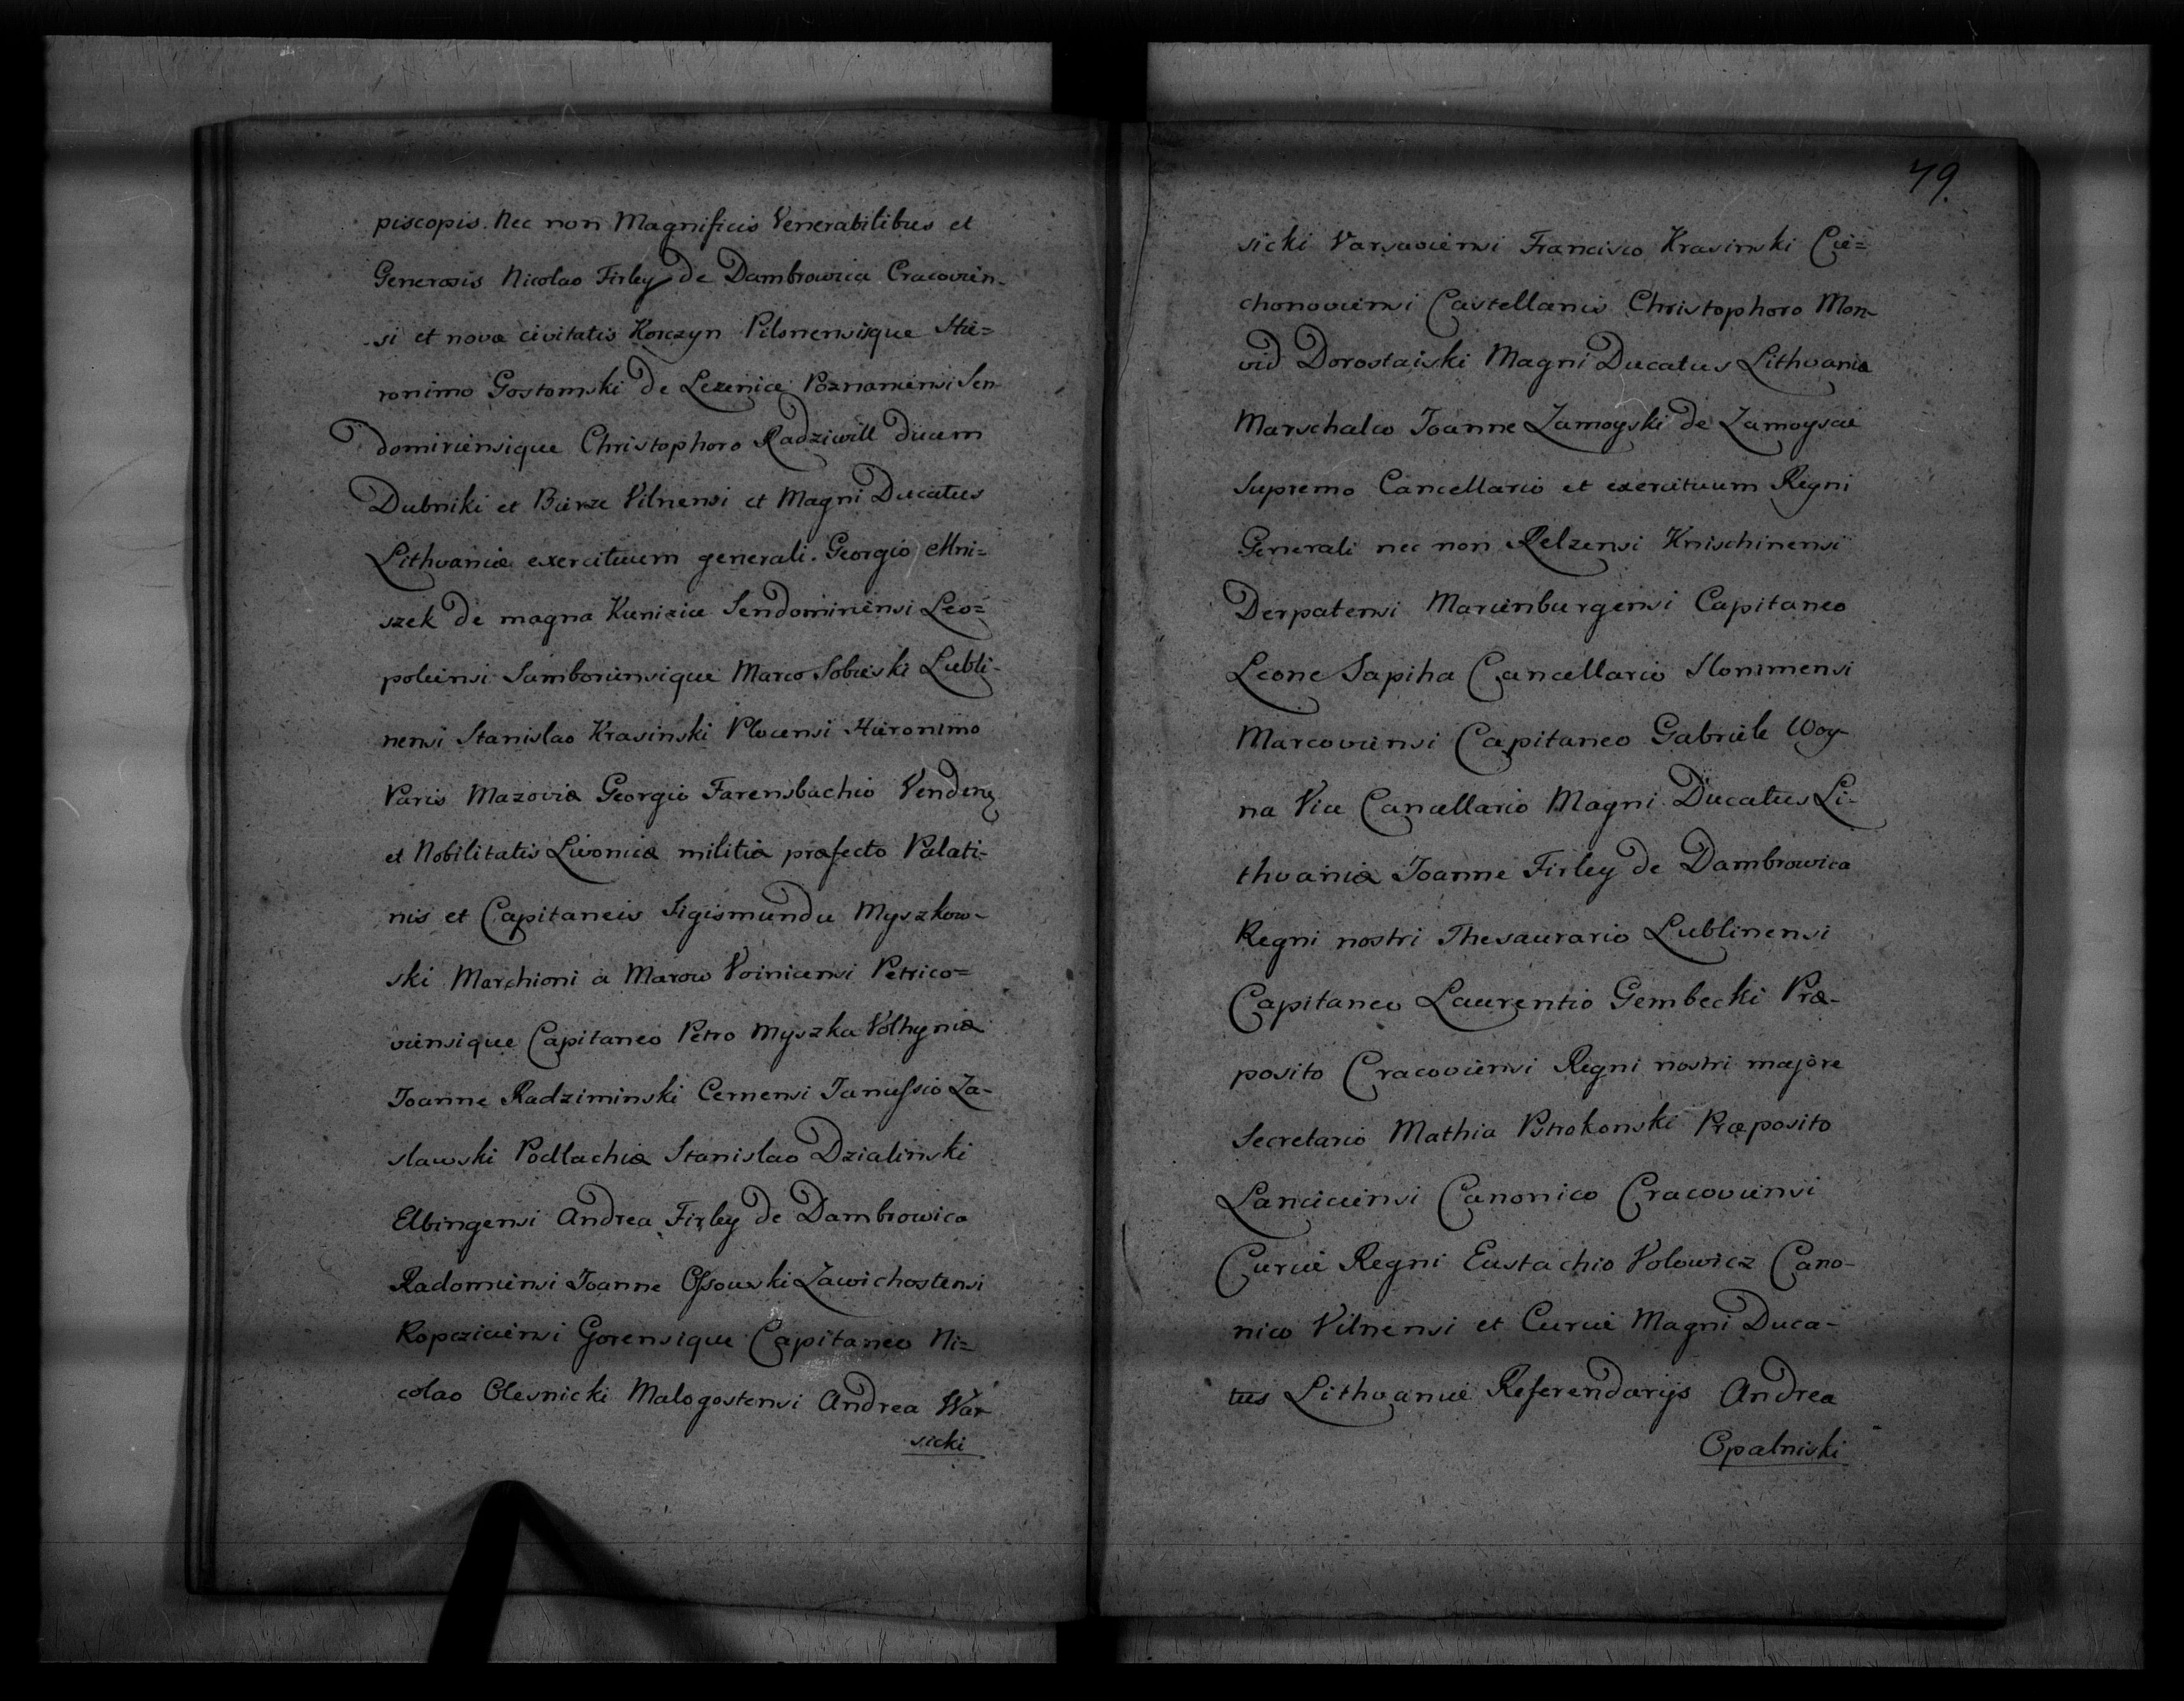 piscopis. Nec non Magnificis Venerabilibus et
Generosis Nicolao Firley de Dambrowica Cracovien-
si et novæ civitatis Korczyn Pilonensisque Hie=
ronimo Gostomski de Lezenice Poznaniensi Sen-
domiriensique Christophoro Radziwill ducem
Dubniki et Bierze Vilnensi et Magni Ducatus
Lithvaniæ exercituum generali. Georgio Mni=
szek de magna Kunizice Sendominiensi Leo=
poliensi Samboriensique Marco Sobieski Lubli-
nensi Stanislao Krasinski Plocensi Hieronimo
Paris Mazoviæ Georgio Farensbachio Venden
et Nobilitatis Livoniæ militiæ præfecto Palati=
nis et Capitaneis Sigismundu Myszkow-
ski Marchioni a Marow Voinicensi Petrico=
viensique Capitaneo Petro Myszka Volhyniæ
Joanne Radziminski Cernensi Janussio Za-
slawski Podlachiæ Stanislao Dzialinski
Elbingensi Andrea Firley de Dambrowica
Radomiensi Joanne Ossowski Zawichostensi
Ropcziciensi Gorensique Capitaneo Ni=
colao Olesnicki Malogostensi Andrea War
sicki
79.
sicki Varsaviensi Francisco Krasinski Cie=
chonoviensi Castellanis Christophoro Mon-
vid Dorostaiski Magni Ducatus Lithvaniæ
Marschalco Joanne Zamoyski de Zamoyscie
Supremo Cancellario et exercituum Regni
Generali nec non Relzensi Knischinensi
Derpatensi Marienburgensi Capitaneo
Leone Sapiha Cancellario Slonimensi
Marcoviensi Capitaneo Gabriele Woy-
na Vice Cancellario Magni Ducatus Li-
thvaniæ Joanne Firley de Dambrowica
Regni nostri Thesaurario Lublinensi
Capitaneo Laurentio Gembecki Præ-
posito Cracoviensi Regni nostri majore
Secretario Mathia Pstrokonski Præposito
Lanciciensi Canonico Cracoviensi
Curiæ Regni Eustachio Volowicz Cano-
nico Vilnensi et Curiæ Magni Duca-
tus Lithvaniæ Referendarijs Andrea
Opalniski